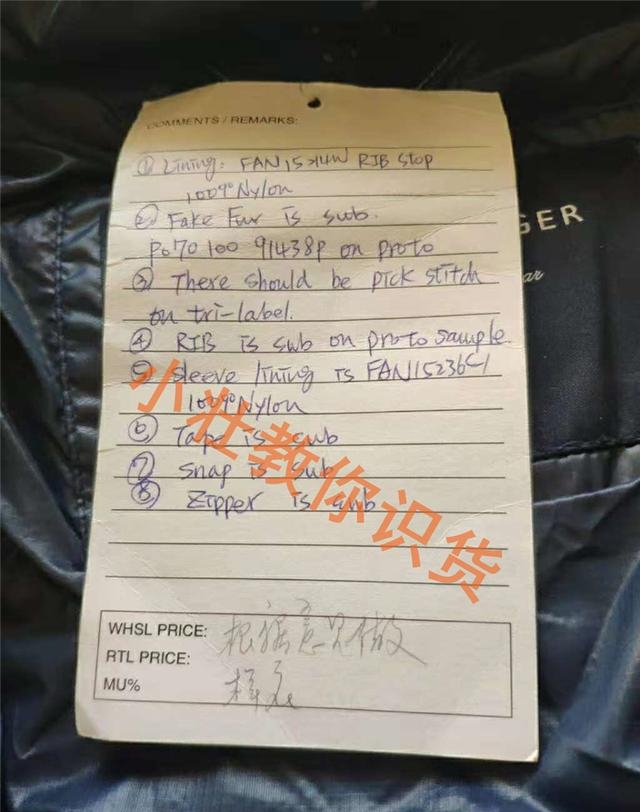 COMMENTS / REMARKS:
① Lining: FAN15214W RIB stop
100% Nylon
② Fake Fur is sub.
P070100 91438P on proto
③ There should be pick stitch
on tri-label.
④ RIB is sub on proto sample.
⑤ sleeve lining is FAN15236C1
100% Nylon
⑥ Tape is sub
⑦ snap is sub
⑧ Zipper is sub
WHSL PRICE: 根据意见做
RTL PRICE:
MU% 样衣
GER
ar
小壮教你识货